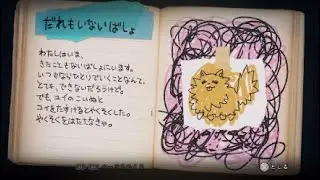 だれもいないばしょ
わたしはいま、
きたこともないばしょにいます。
いつもならひとりでいくことなんて、
とても、できないだろうけど。
でも、ユイのこいぬと
ユイをたすけるとやくそくした。
やくそくをはたさなきゃ。
とじる